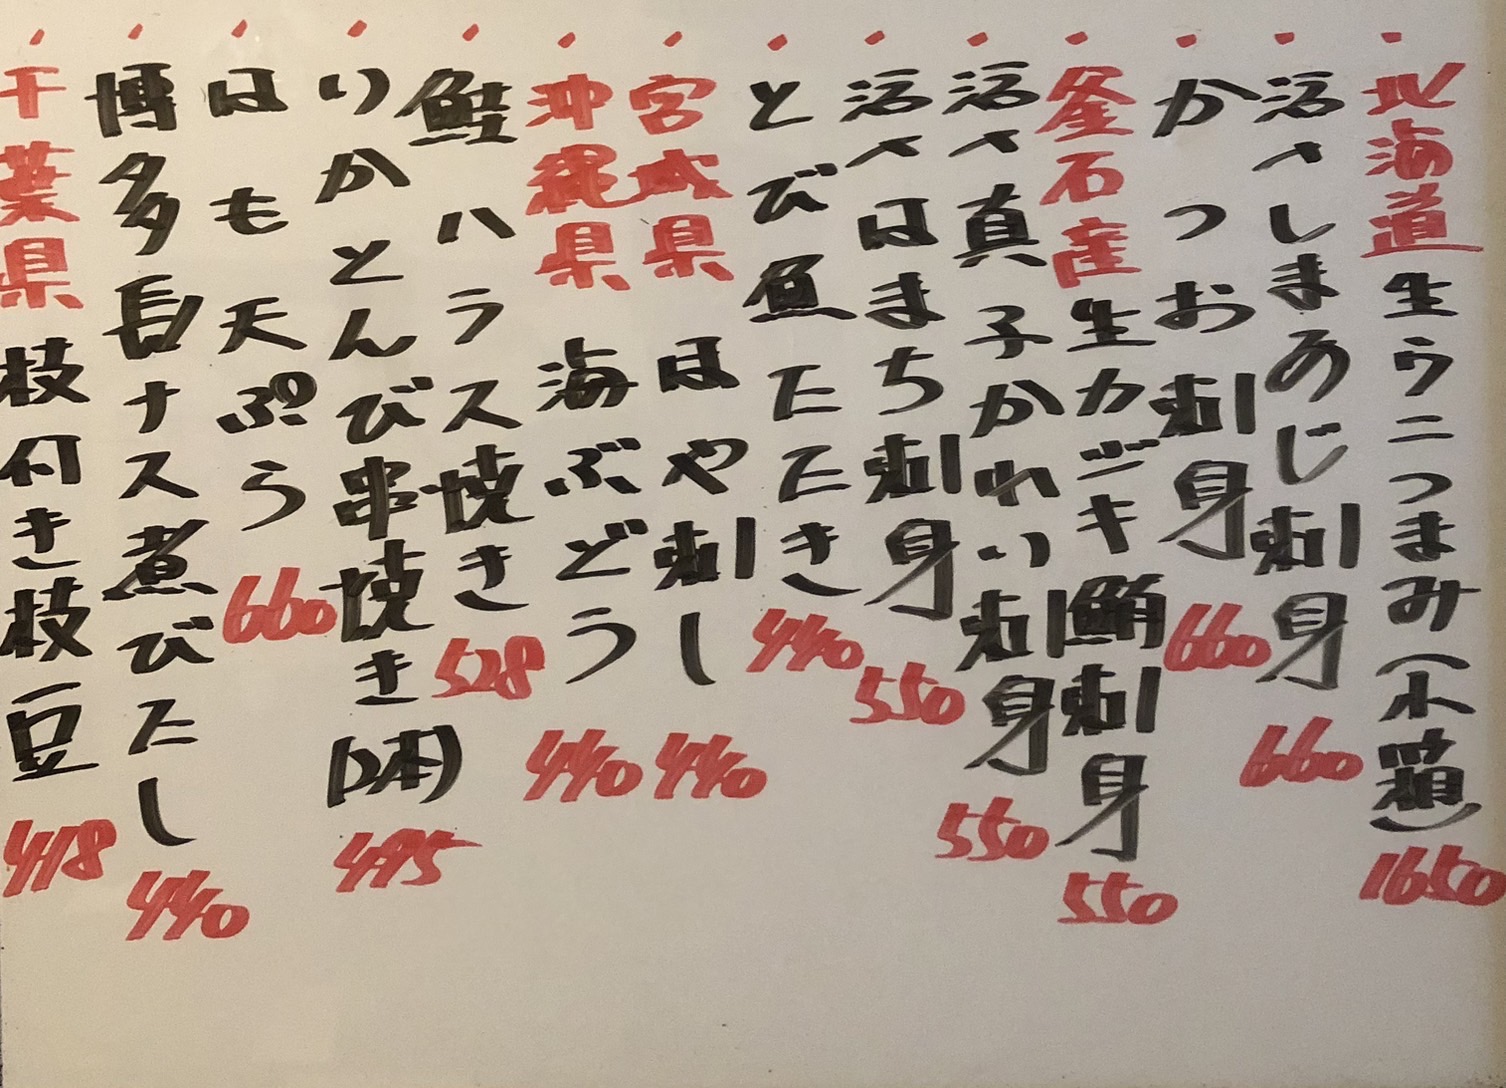 ・北海道生ウニつまみ(小箱)1650
・活〆しまあじ刺身660
・かつお刺身660
・釜石産生カジキ鮪刺身550
・活〆真子かれい刺身550
・活〆はまち刺身550
・とび魚たたき440
・宮城県ほや刺し440
・沖縄県海ぶどう440
・鮭ハラス焼き528
・いかとんび串焼き(2本)495
・はも天ぷら660
・博多長ナス煮びたし440
・千葉県枝付き枝豆418